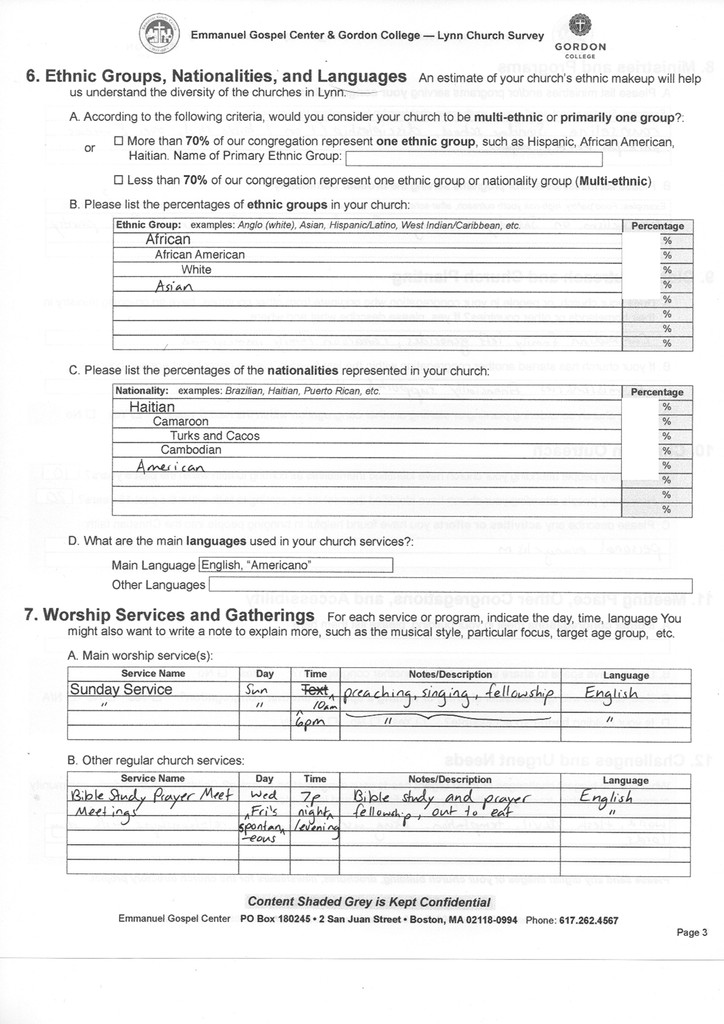 Emmanuel Gospel Center & Gordon College — Lynn Church Survey
GORDON
COLLEGE
6. Ethnic Groups, Nationalities, and Languages An estimate of your church's ethnic makeup will help
us understand the diversity of the churches in Lynn.
A. According to the following criteria, would you consider your church to be multi-ethnic or primarily one group?:
☐ More than 70% of our congregation represent one ethnic group, such as Hispanic, African American,
or
Haitian. Name of Primary Ethnic Group:
☐ Less than 70% of our congregation represent one ethnic group or nationality group (Multi-ethnic)
B. Please list the percentages of ethnic groups in your church:
Ethnic Group: examples: Anglo (white), Asian, Hispanic/Latino, West Indian/Caribbean, etc. Percentage
African %
African American %
White %
Asian %
%
%
%
%
C. Please list the percentages of the nationalities represented in your church:
Nationality: examples: Brazilian, Haitian, Puerto Rican, etc. Percentage
Haitian %
Camaroon %
Turks and Cacos %
Cambodian %
American %
%
%
%
D. What are the main languages used in your church services?:
Main Language English, "Americano"
Other Languages
7. Worship Services and Gatherings For each service or program, indicate the day, time, language You
might also want to write a note to explain more, such as the musical style, particular focus, target age group, etc.
A. Main worship service(s):
Service Name Day Time Notes/Description Language
Sunday Service Sun Text preaching, singing, fellowship English
" " 10am
6pm " "
B. Other regular church services:
Service Name Day Time Notes/Description Language
Bible Study Prayer Meet Wed 7p Bible study and prayer English
Meetings Fri's night fellowship, out to eat "
spontan /evening
-eous
Content Shaded Grey is Kept Confidential
Emmanuel Gospel Center PO Box 180245 • 2 San Juan Street • Boston, MA 02118-0994 Phone: 617.262.4567
Page 3